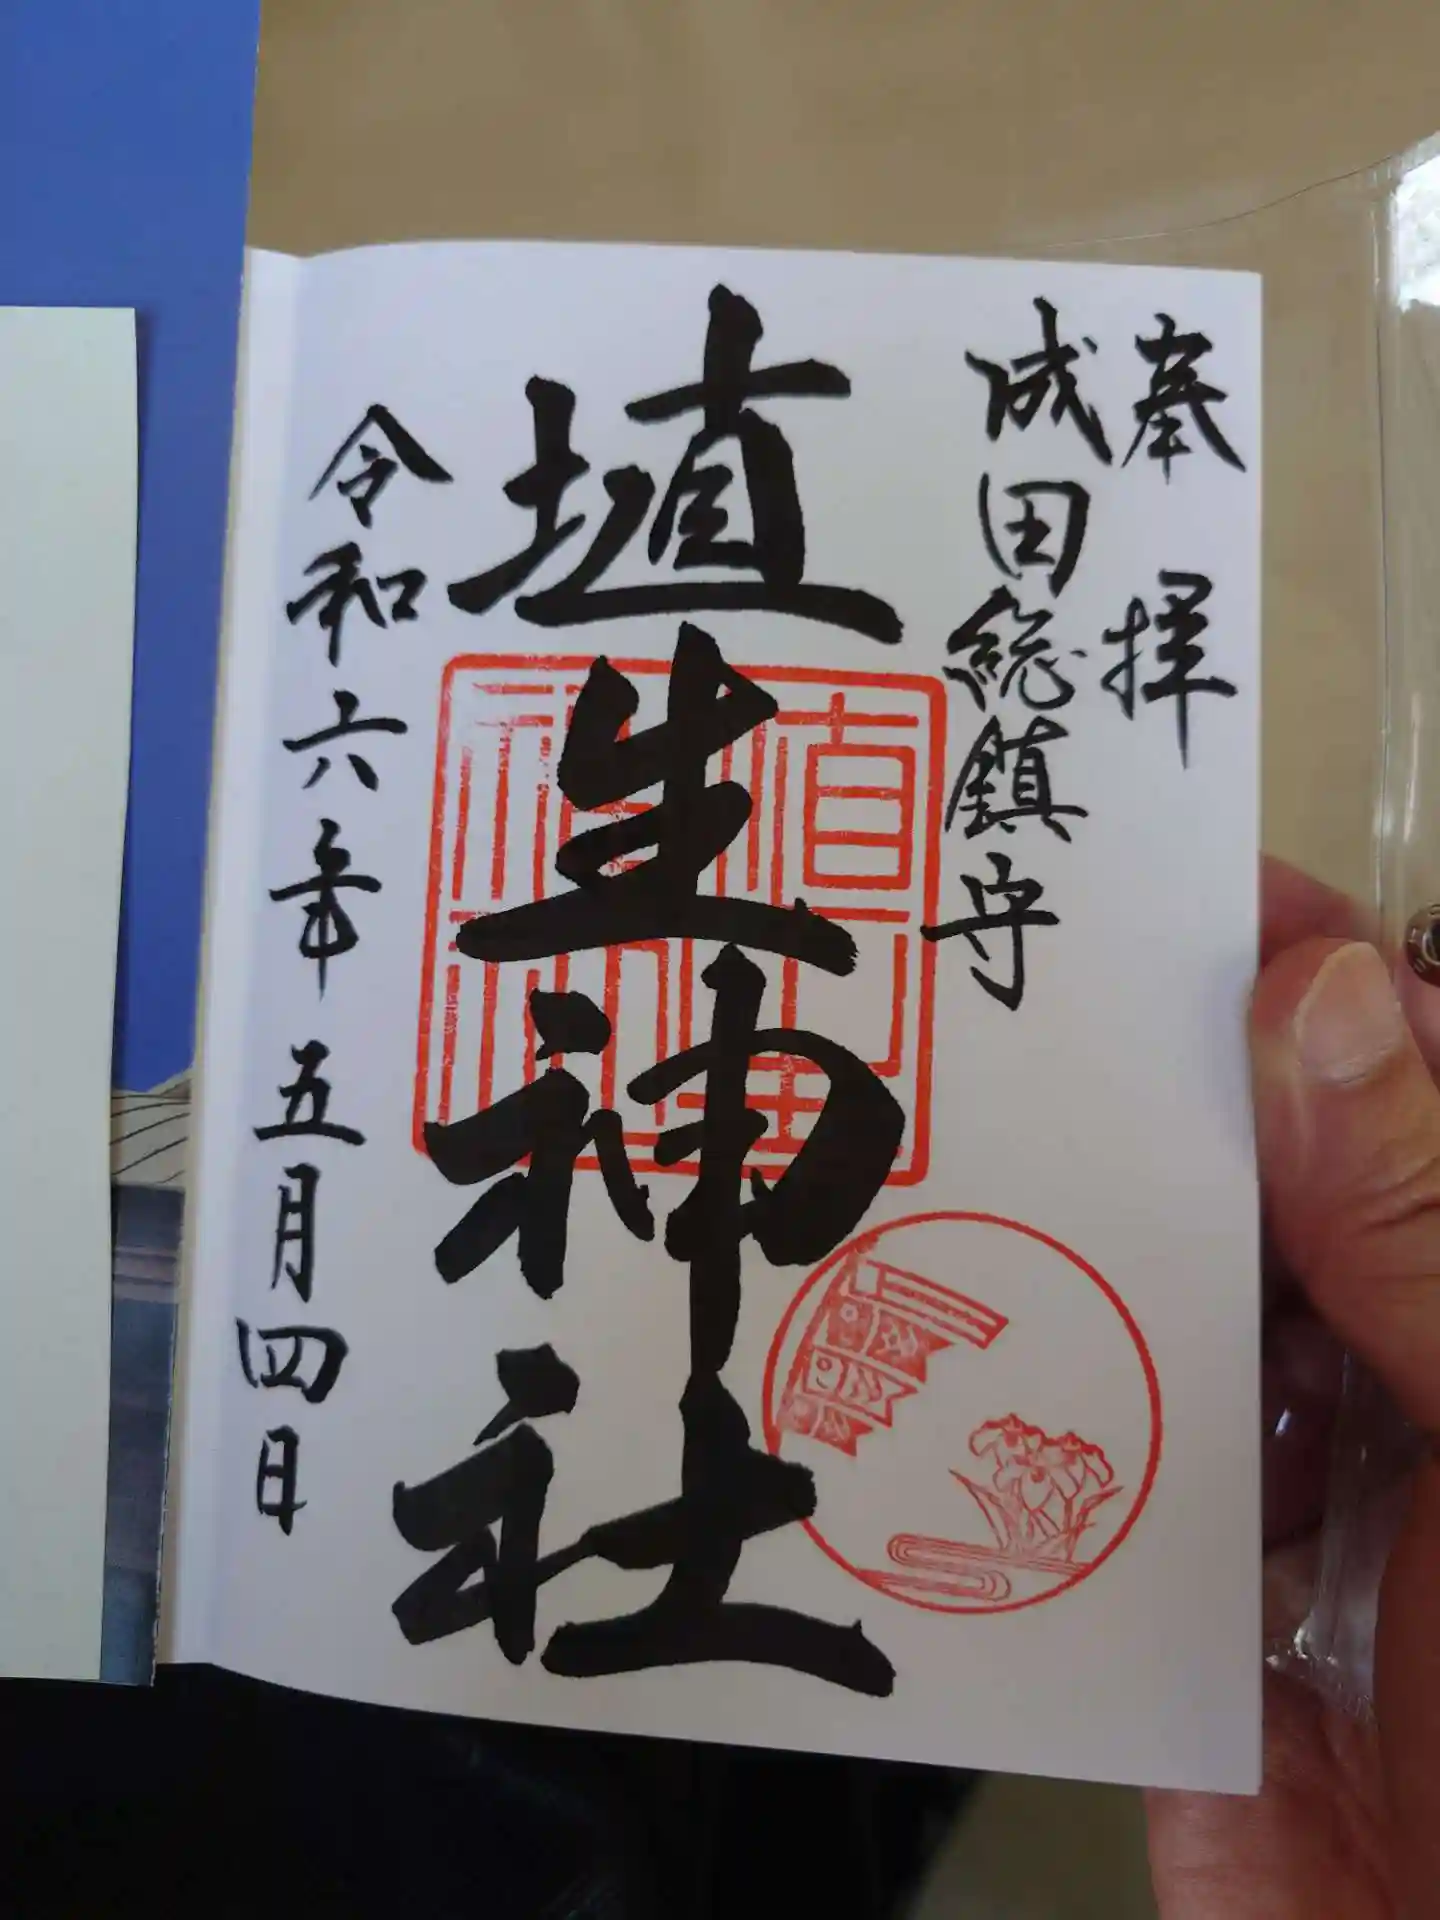 奉拝
成田総鎮守
埴生神社
令和六年五月四日
埴生神社